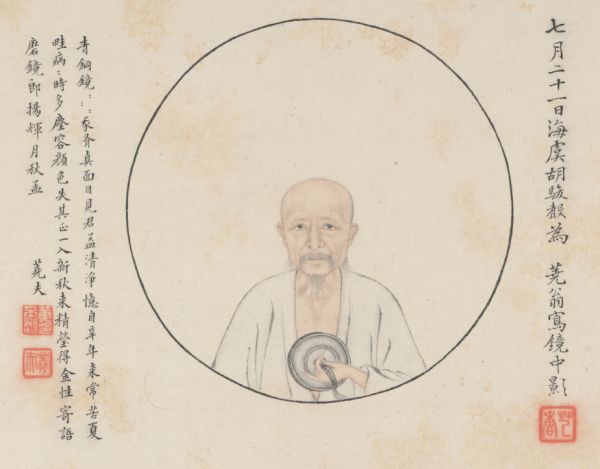 七月二十一日海虞胡駿聲為 蕘翁寫鏡中影
芑香
青銅鏡 真面目見君孟清淨憶自辛年来常苦夏
畦病〻時多塵容顏色失其正一入新秋来精瑩得金性寄語
磨鏡郎揚輝月秋孟
蕘夫